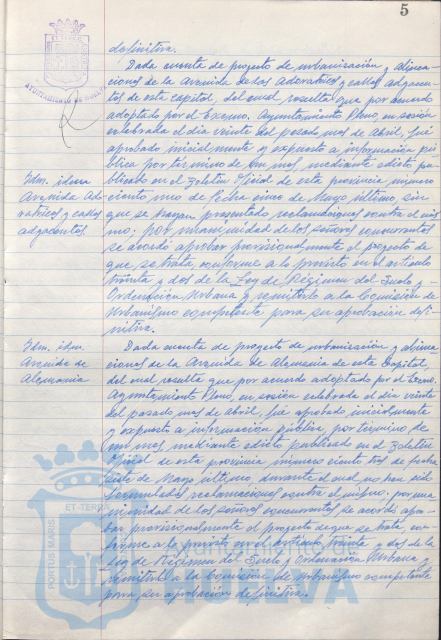 5
AYUNTAMIENTO DE HUELVA
definitiva.
Dada cuenta de proyecto de urbanización y alinea-
ciones de la Avenida de las Adoratrices y calles adyacen-
tes de esta capital, del cual resulta que por acuerdo
adoptado por el Excmo. Ayuntamiento Pleno, en sesión
celebrada el día veinte del pasado mes de Abril, fué
aprobado inicialmente y expuesto a información pú-
blica por término de un mes, mediante edicto pu-
blicado en el Boletín Oficial de esta provincia número
ciento uno de fecha cinco de Mayo último sin
que se hayan presentado reclamaciones contra el mis-
mo; por unanimidad de los señores concurrentes
se acordó aprobar provisionalmente el proyecto de
que se trata, conforme a lo previsto en el artículo
treinta y dos de la Ley de Régimen del Suelo y
Ordenación Urbana y remitirlo a la Comisión de
Urbanismo competente para su aprobación defi-
nitiva.
Idm. idem
Avenida Ado-
ratrices y calles
adyacentes
Dada cuenta de proyecto de urbanización y alinea-
ciones de la Avenida de Alemania de esta Capital,
del cual resulta que por acuerdo adoptado por el Excmo.
Ayuntamiento Pleno, en sesión celebrada el día veinte
del pasado mes de abril, fué aprobado inicialmente
y expuesto a información pública, por término de
un mes mediante edicto publicado en el Boletín
Oficial de esta provincia número ciento tres de fecha
siete de Mayo último, durante el cual no han sido
formuladas reclamaciones contra el mismo; por una-
nimidad de los señores concurrentes se acordó apro-
bar provisionalmente el proyecto de que se trata, con-
forme a lo previsto en el artículo treinta y dos de la
Ley de Régimen del Suelo y Ordenación Urbana y
remitirlo a la Comisión de Urbanismo competente
para su aprobación definitiva.
Idm. idm.
Avenida de
Alemania
PORTUS MARIS
ET TERRAE
Ayuntamiento de
HUELVA